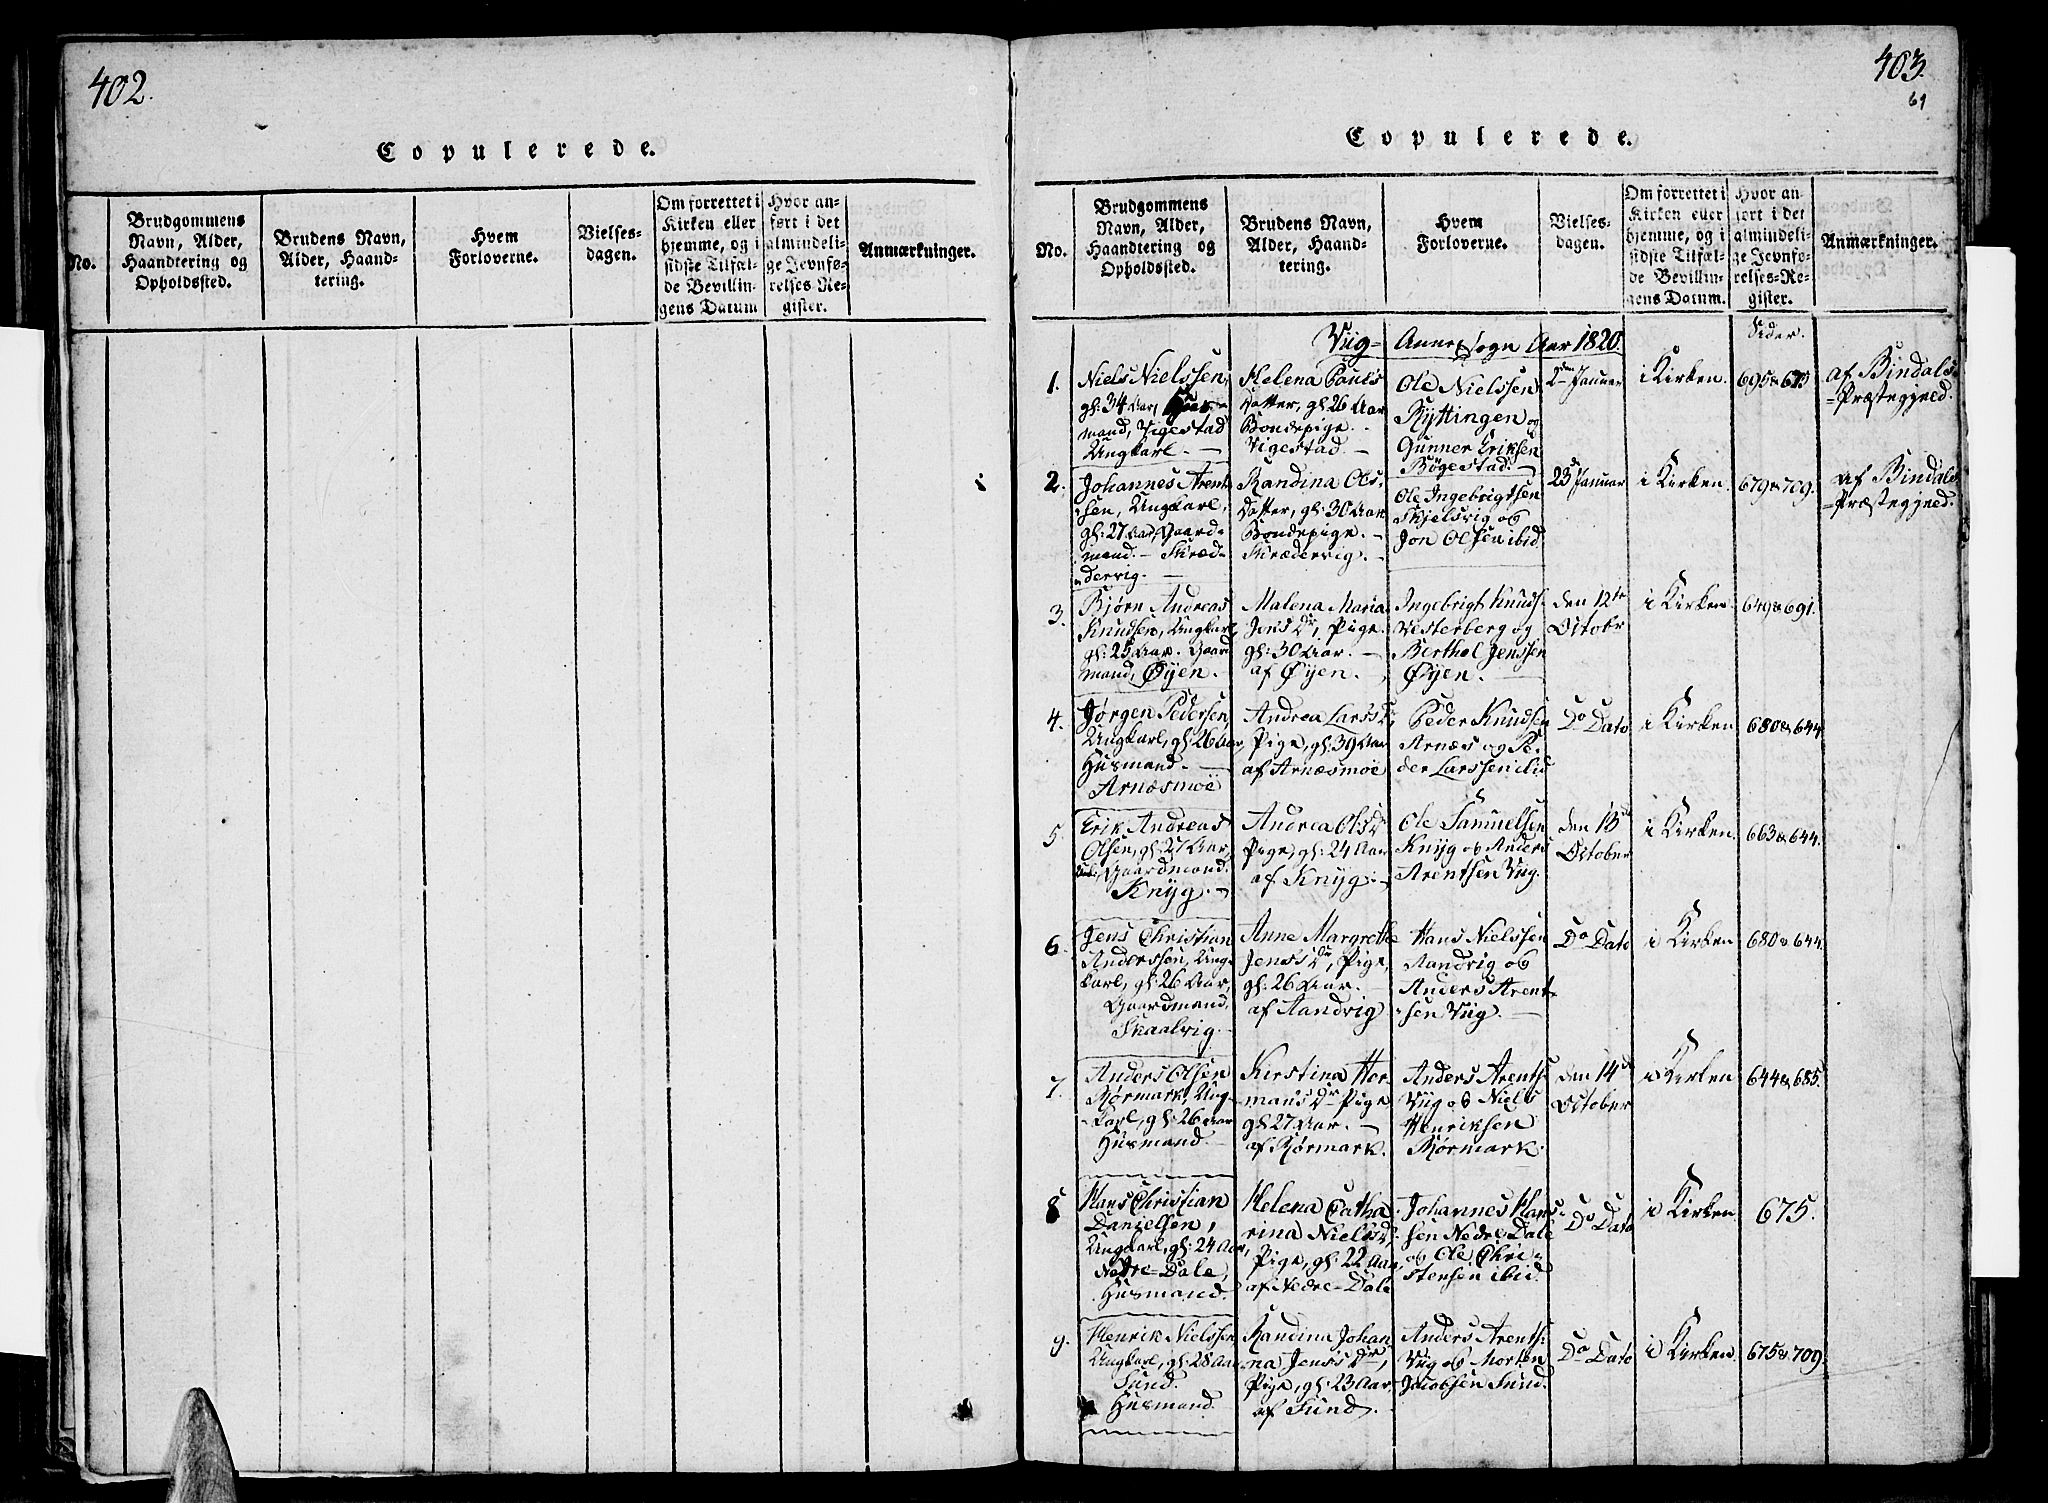 402.
Copulerede.
No.
Brudgommens
Navn, Alder,
Haandtering og
Opholdssted.
Brudens Navn,
Alder, Haand-
tering.
Hvem
Forloverne.
Vielses-
dagen.
Om forrettet i
Kirken eller
hjemme, og i
sidste Tilfæl-
de Bevillin-
gens Datum
Hvor an-
ført i det
almindeli-
ge Jevnfø-
relses-Re-
gister.
Anmærkninger.
403.
61
Copulerede.
No.
Brudgommens
Navn, Alder,
Haandtering og
Opholdssted.
Brudens Navn,
Alder, Haand-
tering.
Hvem
Forloverne.
Vielses-
dagen.
Om forrettet i
Kirken eller
hjemme, og i
sidste Tilfæl-
de Bevillin-
gens Datum.
Hvor an-
ført i det
almindeli-
ge Jevnfø-
relses-Re-
gister.
Anmærkninger.
Viig- Annex Sogn Aar 1820.
Sider.
1.
Niels Nielssen,
gl: 34 Aar,
mand, Vigestad
Ungkarl. -
Helena Pouls
Datter, gl: 26 Aar
Bondepige.
Vigestad. -
Ole Nielssen
Kyttingen og
Gunner Eriksen
Bøgestad. -
2den Januar
i Kirken.
695 &
af Bindals
-Præstegjeld.
2.
Johannes Arent-
sen, Ungkarl,
gl: 27 Aar, Gaard-
mand. - Skræd-
dervig. -
Randina Ols,
Datter, gl: 30 Aar
Bondepige. -
Skrædervig. -
Ole Ingebrigtsen
Skjelsvig og
Jon Olsen ibid.
23d Januar
i Kirken.
679 & 709.
af Bindals
-Præstegjeld.
3.
Bjørn Andreas
Knudsen, Ungkarl,
gl: 25 Aar. Gaard
mand, Øyen. -
Malena Maria
Jens Dr, Pige.
gl: 30 Aar. -
af Øyen. -
Ingebrigt Knuds:
Vesterberg og
Berthel Jenssen
Øyen. -
den 12te
Octobr
i Kirken.
649 & 691.
4.
Jørgen Pedersen
Ungkarl, gl: 26 Aar,
Husmand. -
Arnæsmoe
Andrea Lars Dr
Pige, gl: 39 Aar
af Arnæsmoe
Peder Knudsen
Arnæs og Pe-
der Larssen ibid
Do Dato
i Kirken.
680 & 644.
5.
Erik Andreas
Olsen, gl: 27 Aar,
Gaardmand.
Knyg. -
Andrea Ols Dr
Pige, gl: 24 Aar
af Knyg. -
Ole Samuelsen
Knyg og Anders
Arentsen Viig.
den 13de
October
i Kirken.
663 & 644.
6.
Jens Christian
Anderssen, Ung-
karl, gl: 26 Aar,
Gaardmand,
Skaalvig. -
Anne Margrethe
Jens's Dr, Pige,
gl: 26 Aar. -
af Aandvig
Hans Nielssen
Aandvig og
Anders Arent-
sen Viig. -
Do Dato
i Kirken.
680 & 644.
7.
Anders Olsen
Børmark, Ung-
karl, gl: 26 Aar
Husmand. -
Kirstina Hor-
man's Dr Pige
gl: 27 Aar. -
af Børmark.
Anders Arents:
Viig og Niels
Henriksen
Børmark.
den 14de
October
i Kirken
644 & 685.
8
Hans Christian
Danielsen,
Ungkarl, gl: 24 Aar,
Nedre-Dale,
Husmand.
Helena Catha
rina Niels Dr,
Pige, gl: 22 Aar,
af Nedre-Dale
Johannes Hans-
sen Nedre Dale
og Ole Chri-
stensen ibid.
Do Dato
i Kirken.
675.
9.
Henrik Nielssen
Ungkarl, gl: 28 Aar
Sund.
Husmand.
Randina Johan
na Jens's Dr,
Pige, gl: 23 Aar,
af Sund.
Anders Arents:
Viig og Morten
Jacobsen Sund.
Do Dato
i Kirken.
675 & 709.